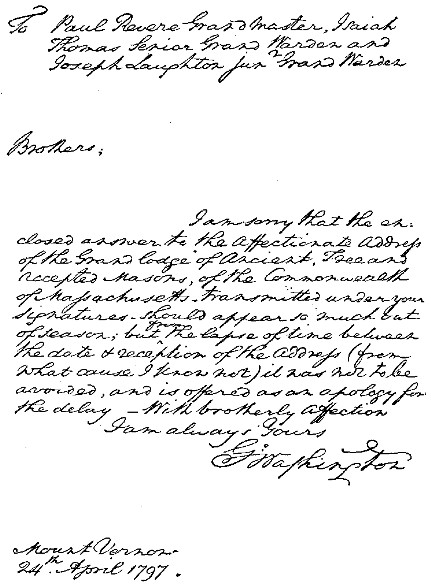 To Paul Revere Grand Master, Isaiah
Thomas Senior Grand Warden and
Joseph Laughton Junr Grand Warden
Brothers;
I am sorry that the en-
closed answer to the affectionate Address
of the Grand lodge of Ancient, Free and
Accepted Masons, of the Commonwealth
of Massachusetts - transmitted under your
signatures - should appear so much out
of season; but from the lapse of time between
the date & reception of the Address (from
what cause I know not) it was not to be
avoided, and is offered as an apology for
the delay - With brotherly affection
I am always Yours
Go Washington
Mount Vernon
24th April 1797.